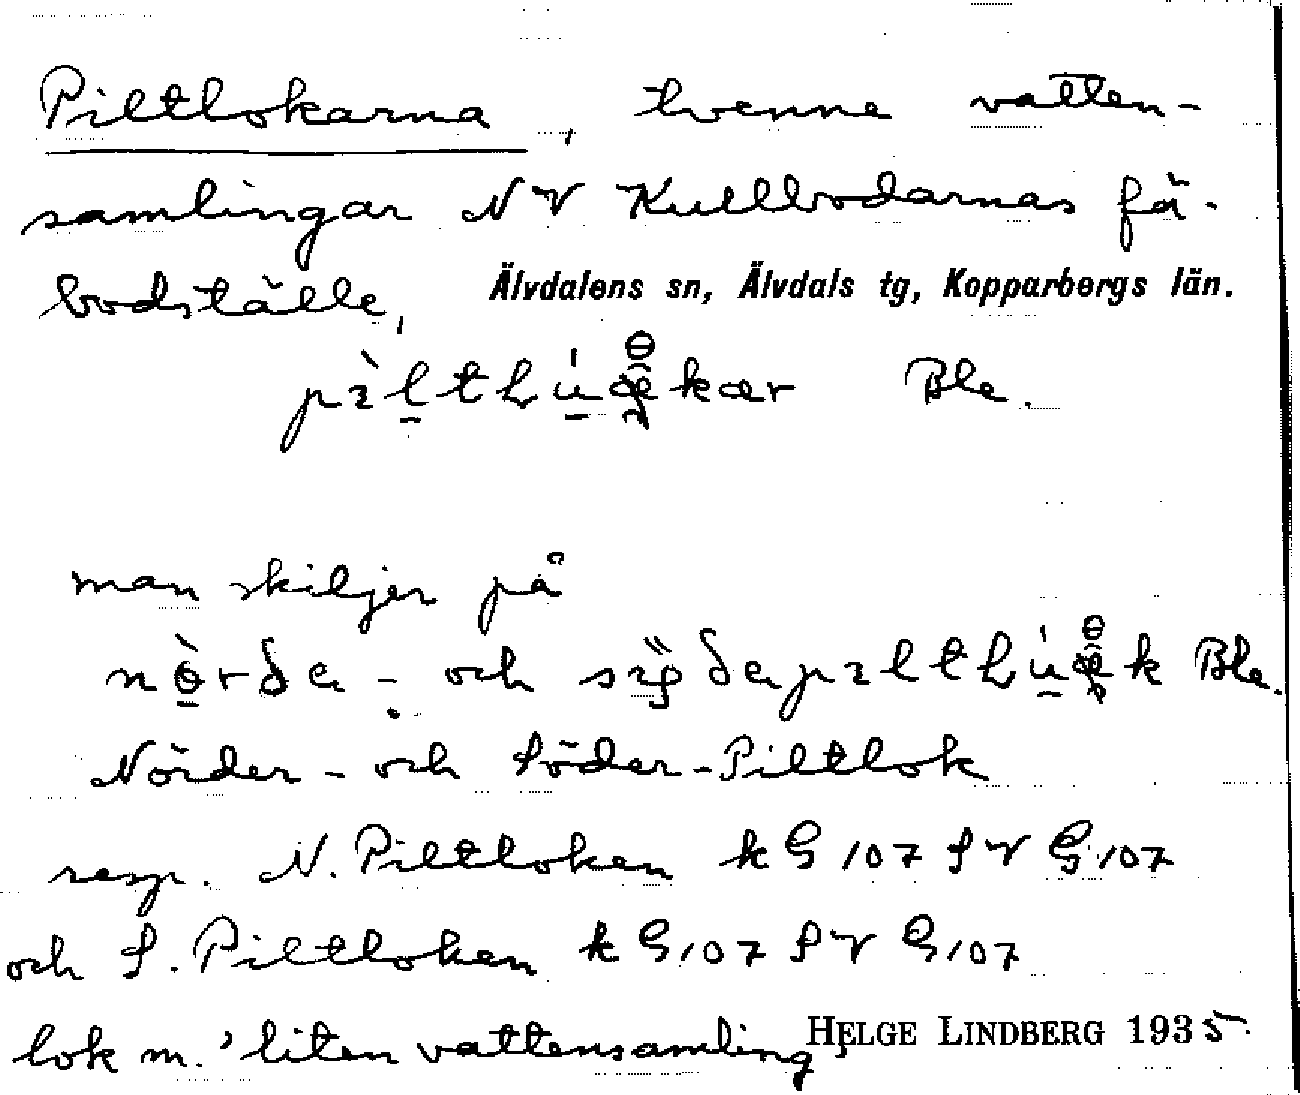 Piltlokarna, tvenne vatten-
samlingar NV Kullbodarnas fä-
bodställe, Älvdalens sn, Älvdals tg, Kopparbergs län.
Ble.
man skiljer på
och Ble.
Nörder- och Söder-Piltlok
resp. N. Piltloken k G 107 SV G 107
och S. Piltloken k G 107 SV G 107
lok m. 'liten vattensamling'
HELGE LINDBERG 1935